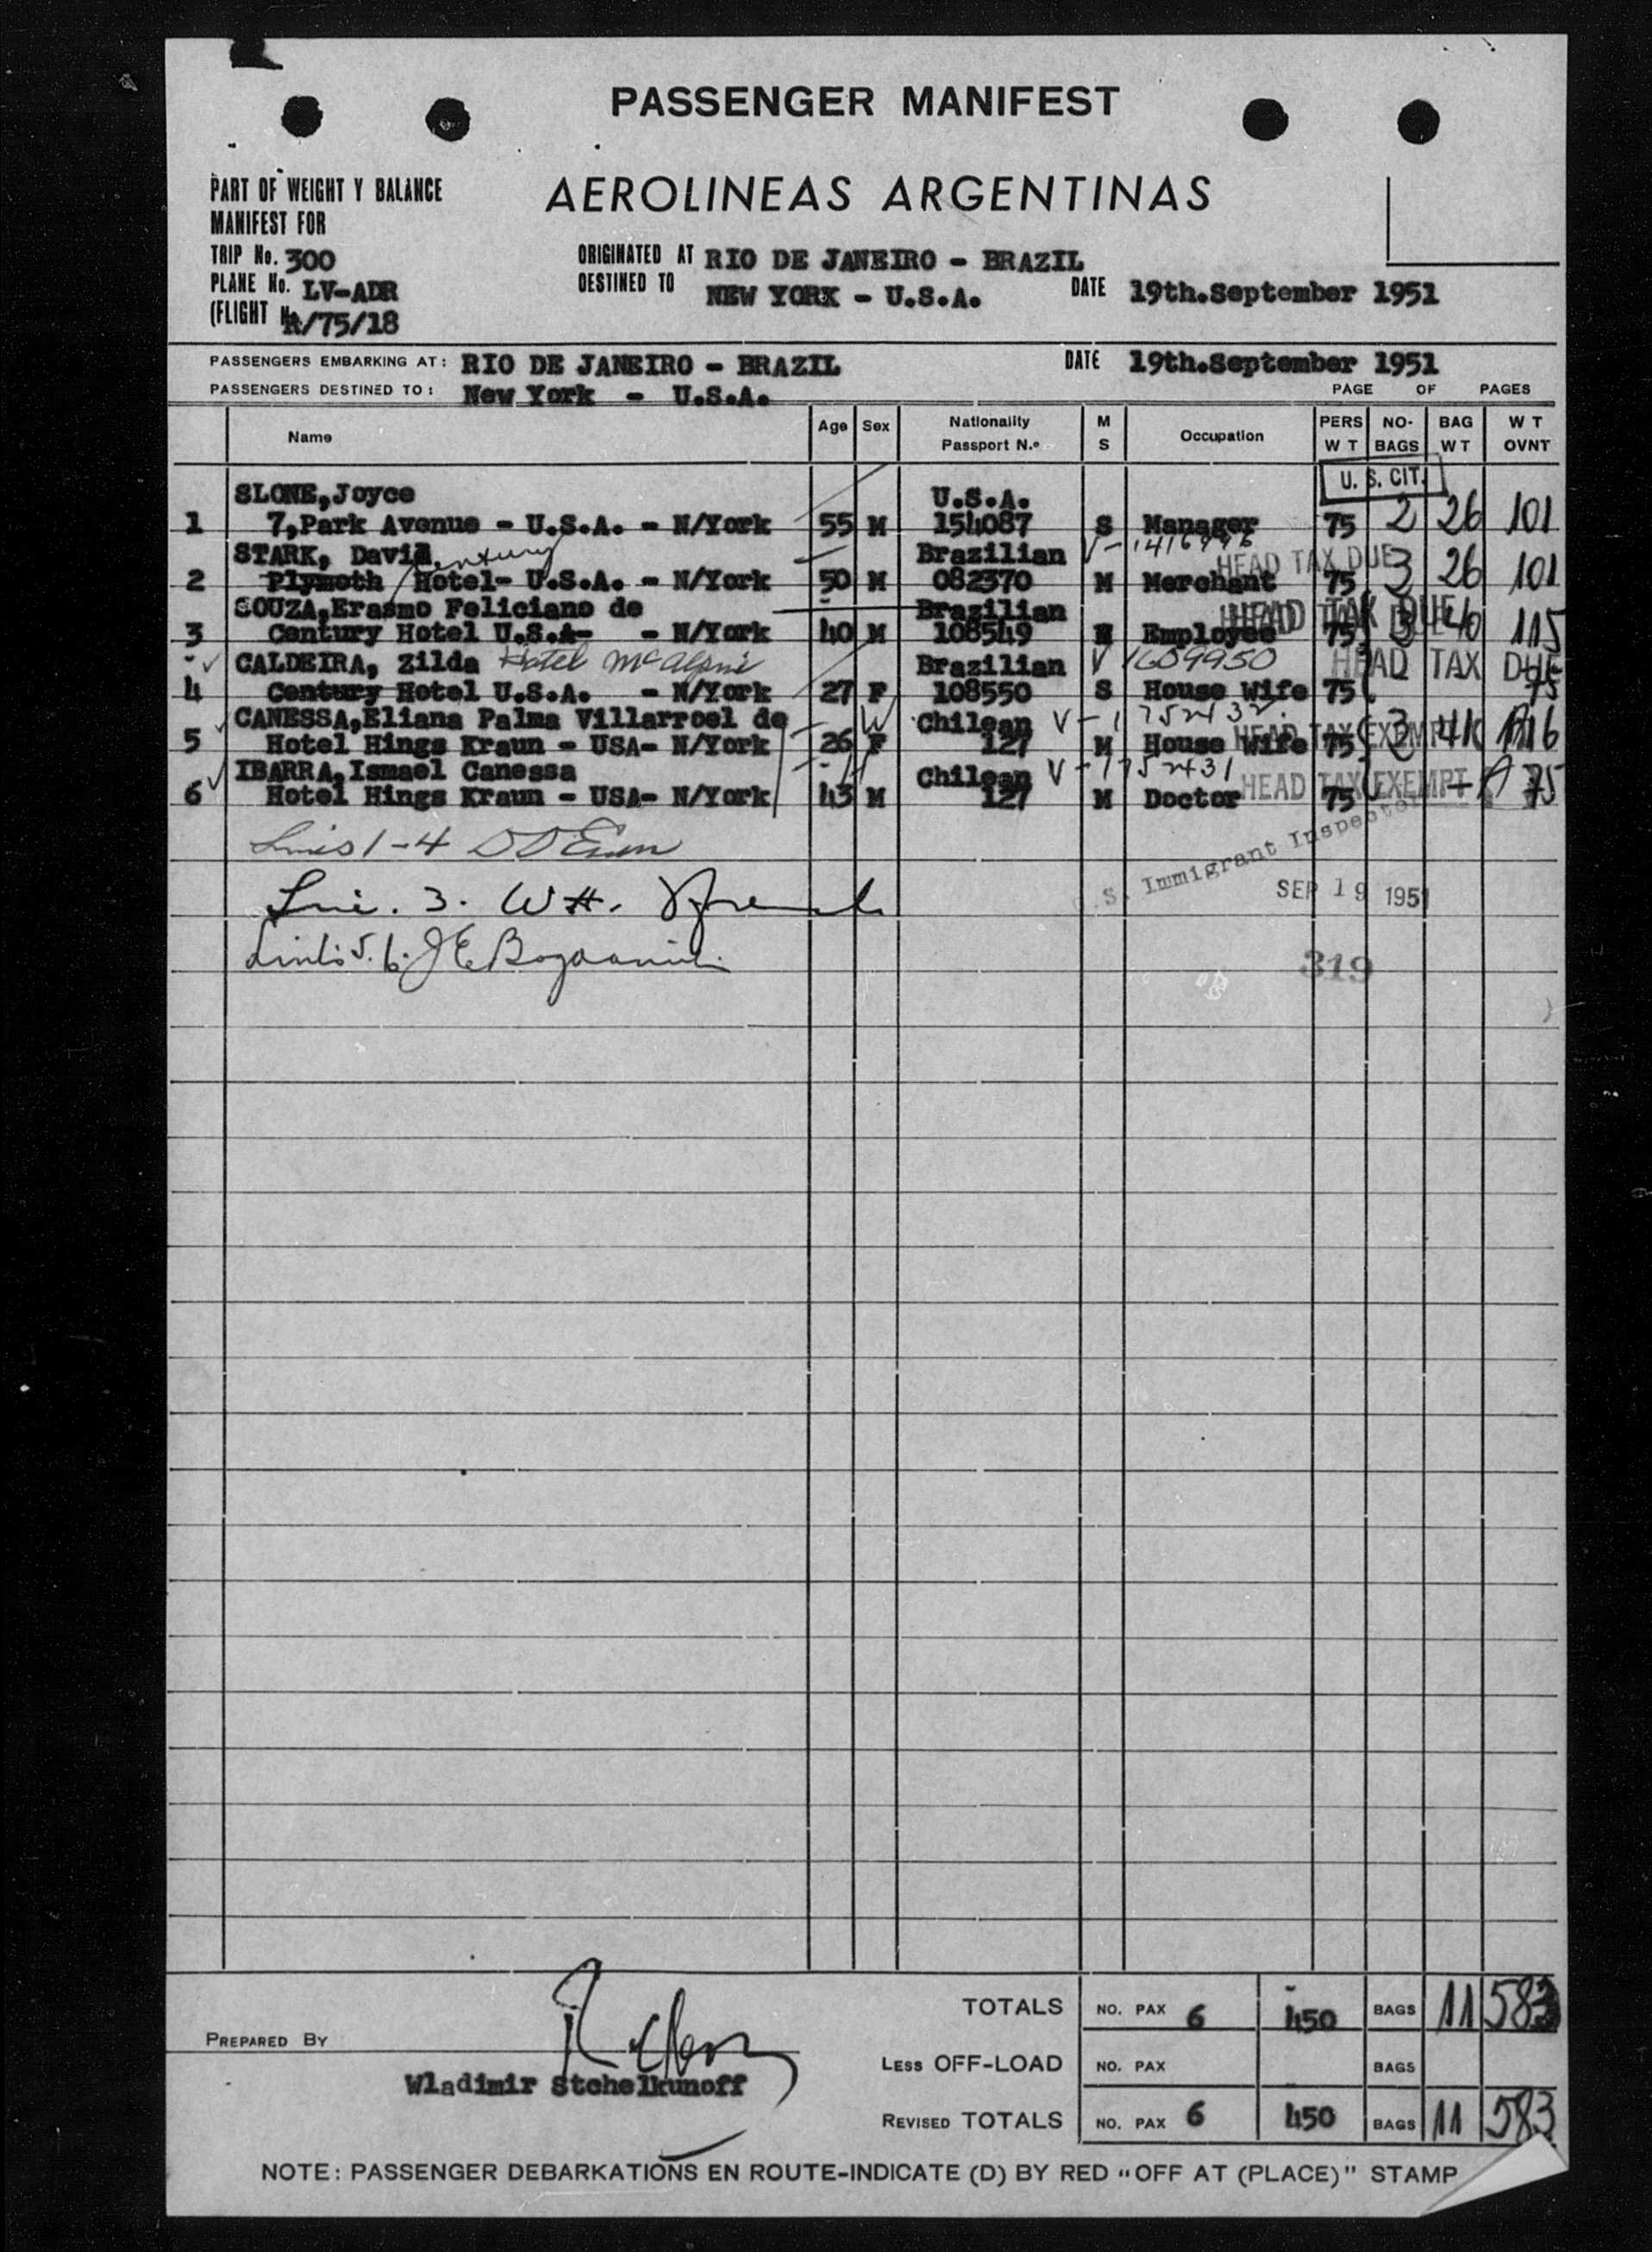 PASSENGER MANIFEST
AEROLINEAS ARGENTINAS
PART OF WEIGHT Y BALANCE
MANIFEST FOR
TRIP No. 300
PLANE No. LV-ADR
(FLIGHT /75/18
ORIGINATED AT RIO DE JANEIRO - BRAZIL
DESTINED TO NEW YORK - U.S.A. DATE 19th.September 1951
PASSENGERS EMBARKING AT: RIO DE JANEIRO - BRAZIL DATE 19th.September 1951
PASSENGERS DESTINED TO: New York - U.S.A. PAGE OF PAGES
Name Age Sex Nationality Passport N.º M S Occupation PERS W T NO- BAGS BAG W T W T OVNT
U. S. CIT.
SLONE, Joyce U.S.A.
1 7, Park Avenue - U.S.A. - N/York 55 M 154087 S Manager 75 2 26 101
STARK, David Century Brazilian HEAD TAX DUE
2 Plymoth Hotel- U.S.A. - N/York 50 M 082370 M Merchant 75 3 26 101
SOUZA, Erasmo Feliciano de Brazilian HEAD TAX DUE
3 Century Hotel U.S.A- - N/York 40 M 108549 Employee 75 3 40 115
CALDEIRA, Zilda Hotel McAlpin Brazilian V 1609950 HEAD TAX DUE
4 Century Hotel U.S.A. - N/York 27 F 108550 S House Wife 75 75
CANESSA, Eliana Palma Villarroel de W Chilean V-1752432 HEAD TAX EXEMPT
5 Hotel Hings Kraun - USA- N/York 26 F 127 M House Wife 75 3 41 116
IBARRA, Ismael Canessa H Chilean V-1752431 HEAD TAX EXEMPT
6 Hotel Hings Kraun - USA- N/York 43 M 127 M Doctor 75 75
Lines 1-4
U.S. Immigrant Inspector
Line. 3.
SEP 19 1951
Lines 5.6.
319
TOTALS NO. PAX 6 450 BAGS 11 583
PREPARED BY
LESS OFF-LOAD NO. PAX BAGS
Wladimir Stchelkunoff
REVISED TOTALS NO. PAX 6 450 BAGS 11 583
NOTE: PASSENGER DEBARKATIONS EN ROUTE-INDICATE (D) BY RED "OFF AT (PLACE)" STAMP